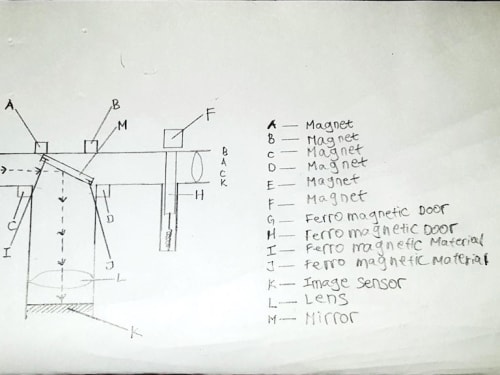 A
B
M
F
B
A
C
K
H
C
D
I
J
L
K
A — Magnet
B — Magnet
C — Magnet
D — Magnet
E — Magnet
F — Magnet
G — Ferro magnetic Door
H — Ferro magnetic Door
I — Ferro magnetic Material
J — Ferro magnetic Material
K — Image sensor
L — Lens
M — Mirror